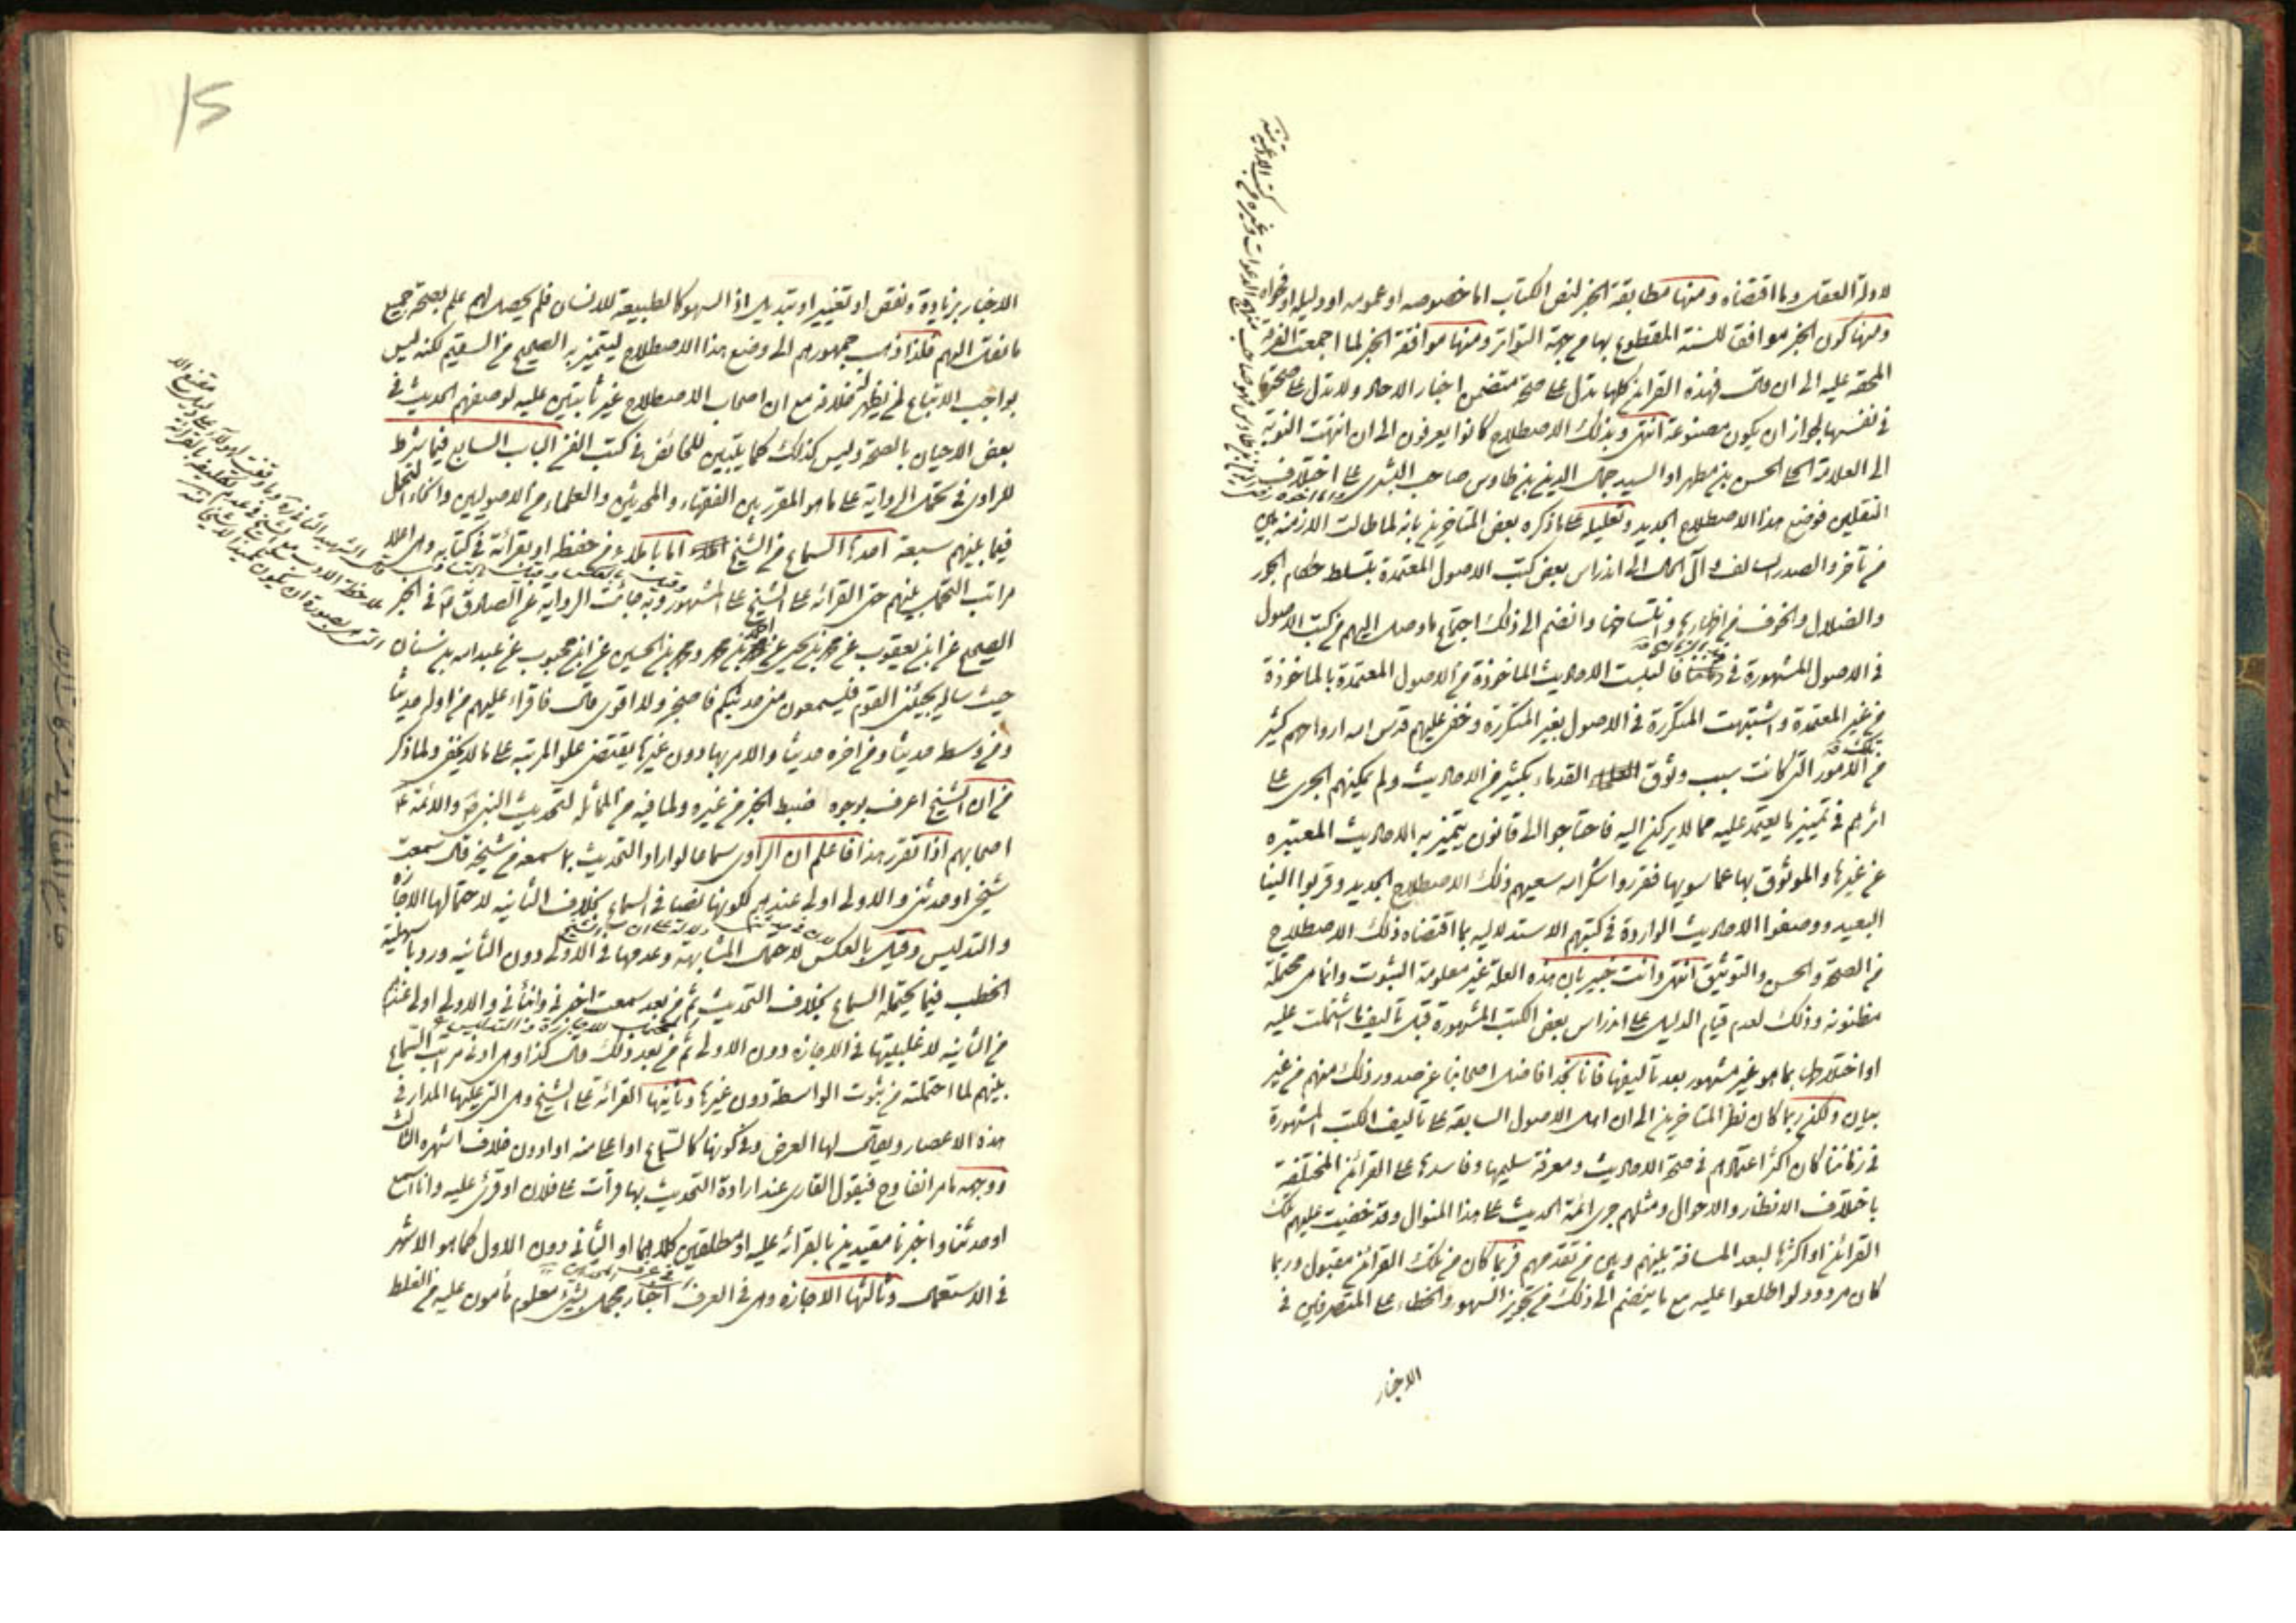 لادلة العقل وما اقتضاه ومنها مطابقة الخبر لنص الكتاب اما خصوصه او عمومه او دليله او فحواه
ومنها كون الخبر موافقا للسنة المقطوع بها من جهة التواتر ومنها موافقة الخبر لما اجمعت الفرقة
المحقه عليه الى ان قال فهذه القرائن كلها تدل على صحة متضمن اخبار الاحاد ولا تدل على صحتها
في نفسها لجواز ان يكون مصنوعة انتهى وبذلك الاصطلاح كانوا يعرفون الى ان انتهت النوبة
الى العلامة الحلي الحسن بن مطهر او السيد جمال الدين بن طاوس صاحب البشرى على اختلاف
النقلين فوضع هذا الاصطلاح الجديد وتعليله على ما ذكره بعض المتاخرين بانه لما طالت الازمنة بين
من تاخر والصدر السالف وآل الحال الى اندراس بعض كتب الاصول المعتمدة بتسلط حكام الجور
والضلال والخوف من اظهارها وانتساخها وانضم الى ذلك اجتماع ما وصل اليهم من كتب الاصول
في الاصول المشهورة في زماننا فالتبست الاحاديث الماخوذة من الاصول المعتمدة بالماخوذة
من غير المعتمدة واشتبهت المتكررة في الاصول بغير المتكررة وخفى عليهم قدس الله ارواحهم كثير
من تلك الامور التي كانت سبب وثوق القدماء بكثير من الاحاديث ولم يمكنهم الجرى على
اثرهم في تمييز ما يعتمد عليه مما لا يركن اليه فاحتاجوا الى قانون يتميز به الاحاديث المعتبره
عن غيرها والموثوق بها عما سويها فقرروا شكر الله سعيهم ذلك الاصطلاح الجديد وقربوا الينا
البعيد ووصفوا الاحاديث الواردة في كتبهم الاستدلاليه بما اقتضاه ذلك الاصطلاح
من الصحة والحسن والتوثيق انتهى وانت خبير بان هذه العلة غير معلومة الثبوت وانما هي محتملة
مظنونه وذلك لعدم قيام الدليل على اندراس بعض الكتب المشهورة قبل تاليف ما اشتملت عليه
او اختلاطها بما هو غير مشهور بعد تاليفها فانا نجد افاضل اصحابنا عن صدور ذلك منهم من غير
بيان ولكن ربما كان نظر المتاخرين الى ان اهل الاصول السابقة على تاليف الكتب المشهورة
في زماننا كان اكثر اعتمادهم في صحة الاحاديث ومعرفة سليمها وفاسدها على القرائن المختلفة
باختلاف الانظار والاحوال ومثلهم جرى ائمة الحديث على هذا المنوال وقد خفيت عليهم تلك
القرائن او اكثرها لبعد المسافة بينهم وبين من تقدمهم فربما كان من تلك القرائن مقبول وربما
كان مردود لو اطلعوا عليه مع ما ينضم الى ذلك من تجويز السهو والخطاء على المتصرفين في
الاخبار
15
الاخبار بزيادة ونقص او تغيير او تبديل اذ السهو كالطبيعة للانسان فلم يحصل لهم علم بصحة جميع
ما نقل اليهم فلذا ذهب جمهورهم الى وضع هذا الاصطلاح ليتميز به الصحيح من السقيم لكنه ليس
بواجب الاتباع لمن يظهر خلافه مع ان اصحاب الاصطلاح غير ثابتين عليه لوصفهم الحديث في
بعض الاحيان بالصحة وليس كذلك كما يتبين للخائض في كتب الفن الباب السابع فيما يشرط
للراوى في تحمل الرواية على ما هو المقرر بين الفقهاء والمحدثين والعلماء من الاصوليين وانحاء التحمل
فيما بينهم سبعة احدها السماع من الشيخ اما باملاء من حفظه او بقرائة في كتابه وهي اعلا
مراتب التحمل بينهم حتى القرائه على الشيخ على المشهور وبه جائت الرواية عن الصادق ع في الخبر
الصحيح عن ابن يعقوب عن محمد بن يحيى عن احمد بن محمد ومحمد بن الحسين عن ابن محبوب عن عبد الله بن سنان
حيث ساله يجيئني القوم فيسمعون مني حديثكم فاضجر ولا اقوى قال فاقراء عليهم من اوله حديثا
ومن وسطه حديثا ومن اخره حديثا والامر بها دون غيرها يقتضى علو المرتبه على ما لا يخفى ولما ذكر
من ان الشيخ اعرف بوجوه ضبط الخبر من غيره ولما فيه من المماثله لتحديث النبي ص والائمة ع
اصحابهم اذا تقرر هذا فاعلم ان الراوى سماعا لو اراد التحديث بما سمعه من شيخه قال سمعت
شيخى او حدثنى والاولى اولى عندهم لكونها نصا في السماع بخلاف الثانيه لاحتمالها الاجازه
والتدليس وقيل بالعكس لاحتمال المشابهة وعدمها في الاولى دون الثانيه وروبا هليه
الخطيب فيما يحتمله السماع بخلاف التحديث ثم من بعد سمعت اخبرنى وانبأنى والاولى اولى عندهم
من الثانيه لاغلبيتها في الاجازه دون الاولى ثم من بعد ذلك قال كذا وهي ادنى مراتب السماع
بينهم لما احتملته من ثبوت الواسطة دون غيرها وثانيها القرائة على الشيخ وهي التي عليها المدار في
هذه الاعصار ويقال لها العرض وفي كونها كالسماع او اعلا منه او ادون خلاف اشهره الثالث
ووجهه ما مر انفا وح فيقول القارى عند ارادة التحديث بها قرات على فلان او قرئ عليه وانا اسمع
او حدثنا واخبرنا مقيدين بالقرائه عليه او مطلقين كلاهما او الثاني دون الاول كما هو الاشهر
في الاستعمال وثالثها الاجازه وهي في العرف اخبار مجمل بشئ معلوم مأمون عليه من الغلط